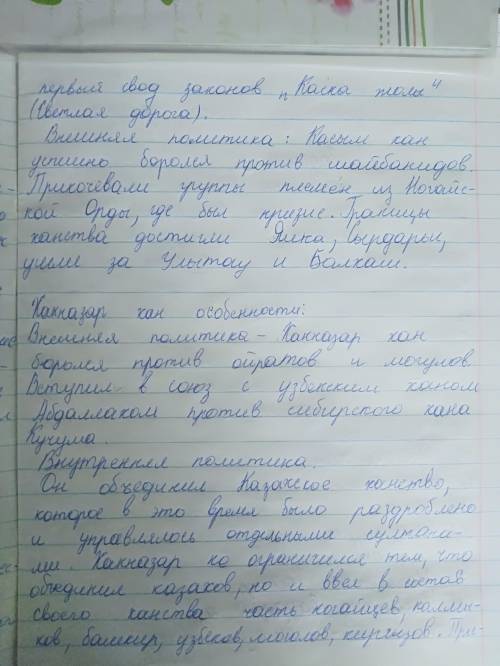 первый свод законов „Каска жолы"
(Светлая дорога).
Внешняя политика: Касым хан
успешно боролся против шайбанидов.
Прикочевали группы племён из Ногайс-
кой Орды, где был кризис. Границы
ханства достигли Яика, Сырдарьи,
ушли за Улытау и Балхаш.
Хакназар хан особенности:
Внешняя политика – Хакназар хан
боролся против ойратов и могулов.
Вступил в союз с узбекским ханом
Абдаллахом против сибирского хана
Кучума.
Внутренняя политика.
Он объединил Казахское ханство,
которое в это время было раздроблено
и управлялось отдельными султана-
ми. Хакназар не ограничился тем, что
объединил казахов, но и ввел в состав
своего ханства часть ногайцев, калмы-
ков, башкир, узбеков, моголов, киргизов. При-